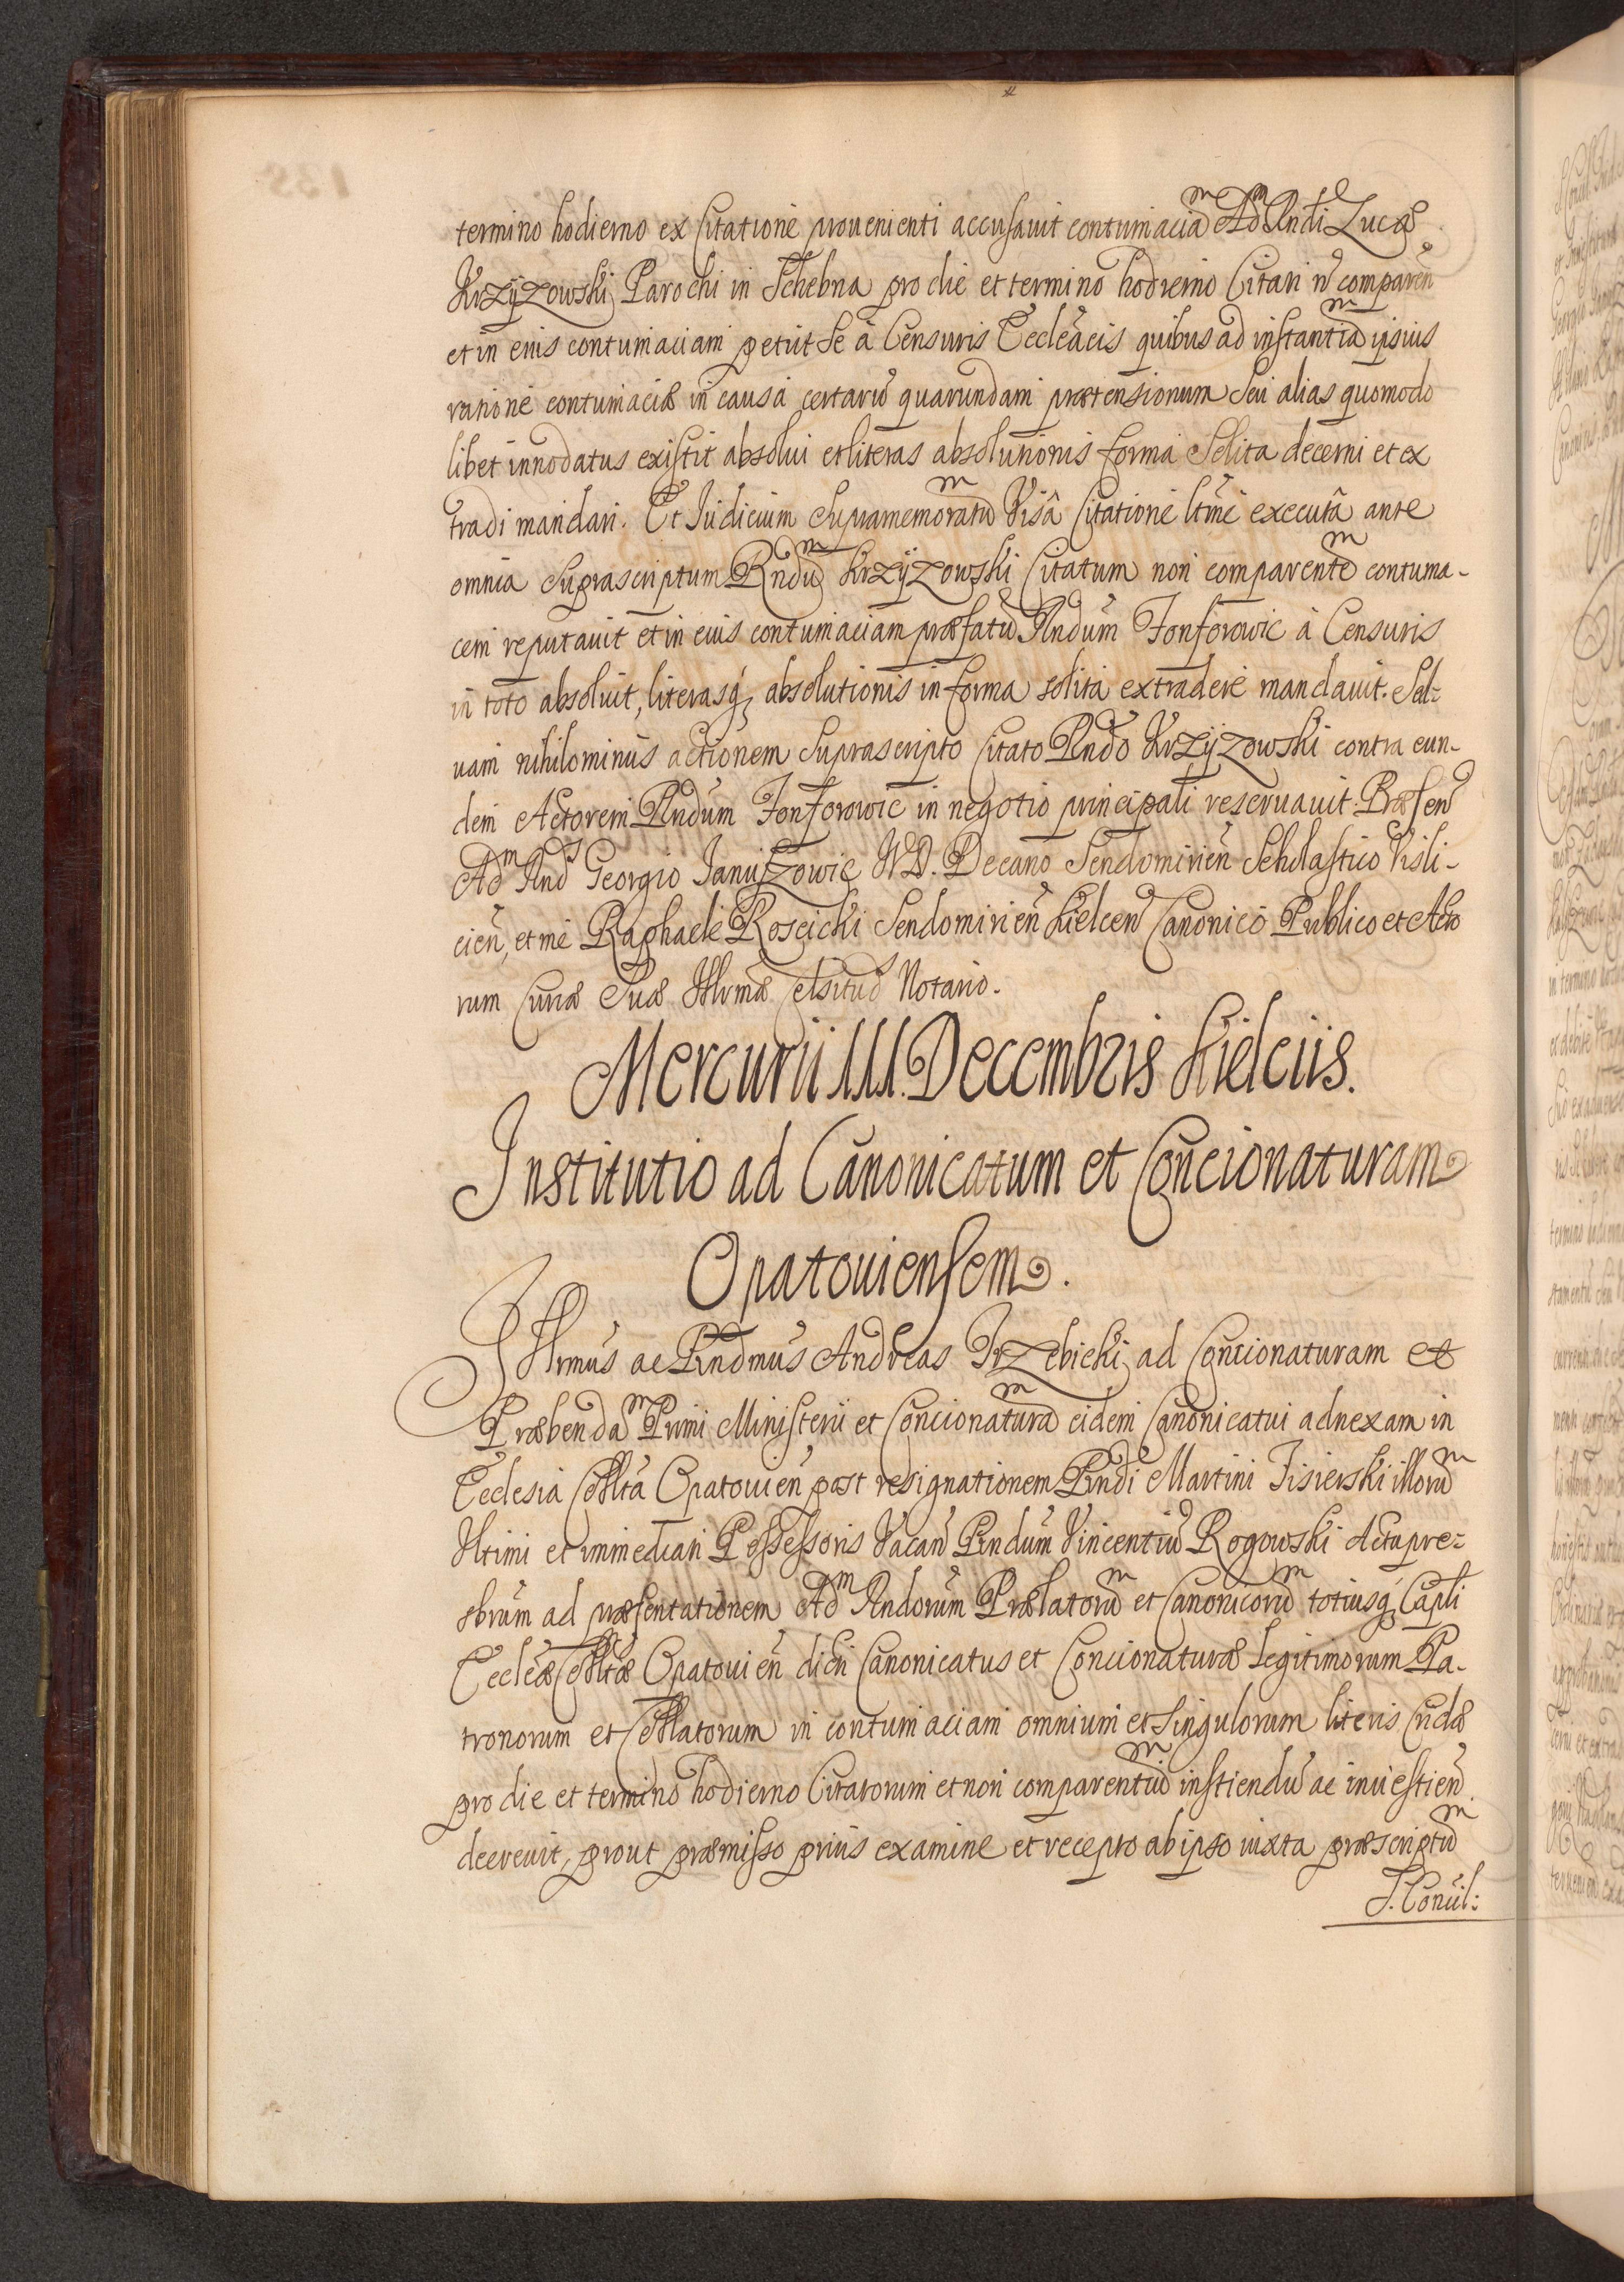 termino hodierno ex Citatione prouenienti accusauit contumacia^m Ad^m Rndi Lucæ
Krzyżowski Parochi in Schebna pro die et termino hodierno Citati ñ comparen̄
et in eius contumaciam petiit se à Censuris Eccleācis quibus ad instantia^m ipsius
ratione contumaciæ in causa certarū quarundam prætensionum seu alias quomodo
libet innodatus existit absolui et literas absolutionis forma solita decerni et ex
tradi mandari. Et Iudicium supramemoratu^m Visâ Citatione ltīme executâ ante
omnia suprascriptum Rndu^m Krzyżowski Citatum non comparente^m contuma-
cem reputauit et in eius contumaciam præfatū Rndum Fonforowic à Censuris
in toto absoluit, literasq3 absolutionis in forma solita extradere mandauit. Sal-
uam nihilominus actionem suprascripto Citato Rndo Krzyżowski contra eun-
dem Actorem Rndum Fonforowic in negotio principali reseruauit. Præsen̄
Ad^m Rnd^s Georgio Ianuszowic V.D. Decano Sendomirien̄ Scholastico Visli-
cien̄, et me Raphaele Roscicki Sendomirien̄ Kielcen̄ Canonico Publico et Acto
rum Curiæ Suæ Illrmæ Celsitud^s Notario.
Mercurii III. Decembris Kielciis.
Institutio ad Canonicatum et Concionaturam
Opatouiensem.
Illrmus ac Rndmus Andreas Trzebicki ad Concionaturam et
Præbenda^m Primi Ministerii et Concionatura^m eidem Canonicatui adnexam in
Ecclesia Collta Opatouien̄ post resignationem Rndi Martini Fisierski illoru^m
Vltimi et immediati Possessoris Vacan̄ Rndum Vincentiū Rogowski Actapre-
sbrum ad præsentationem Ad^m Rndorum Prælatoru^m et Canonicoru^m totiusq3 Capli
Eccleæ Colltæ Opatouien̄ dicti Canonicatus et Concionaturæ Legitimorum Pa-
tronorum et Collatorum in contumaciam omnium et singulorum literis Cridæ
pro die et termino hodierno Citatorum et non comparentiu^m instiendū ac inuestien̄
decreuit, prout præmisso prius examine et recepto ab ipso iuxta præscriptu^m
S. Concil: